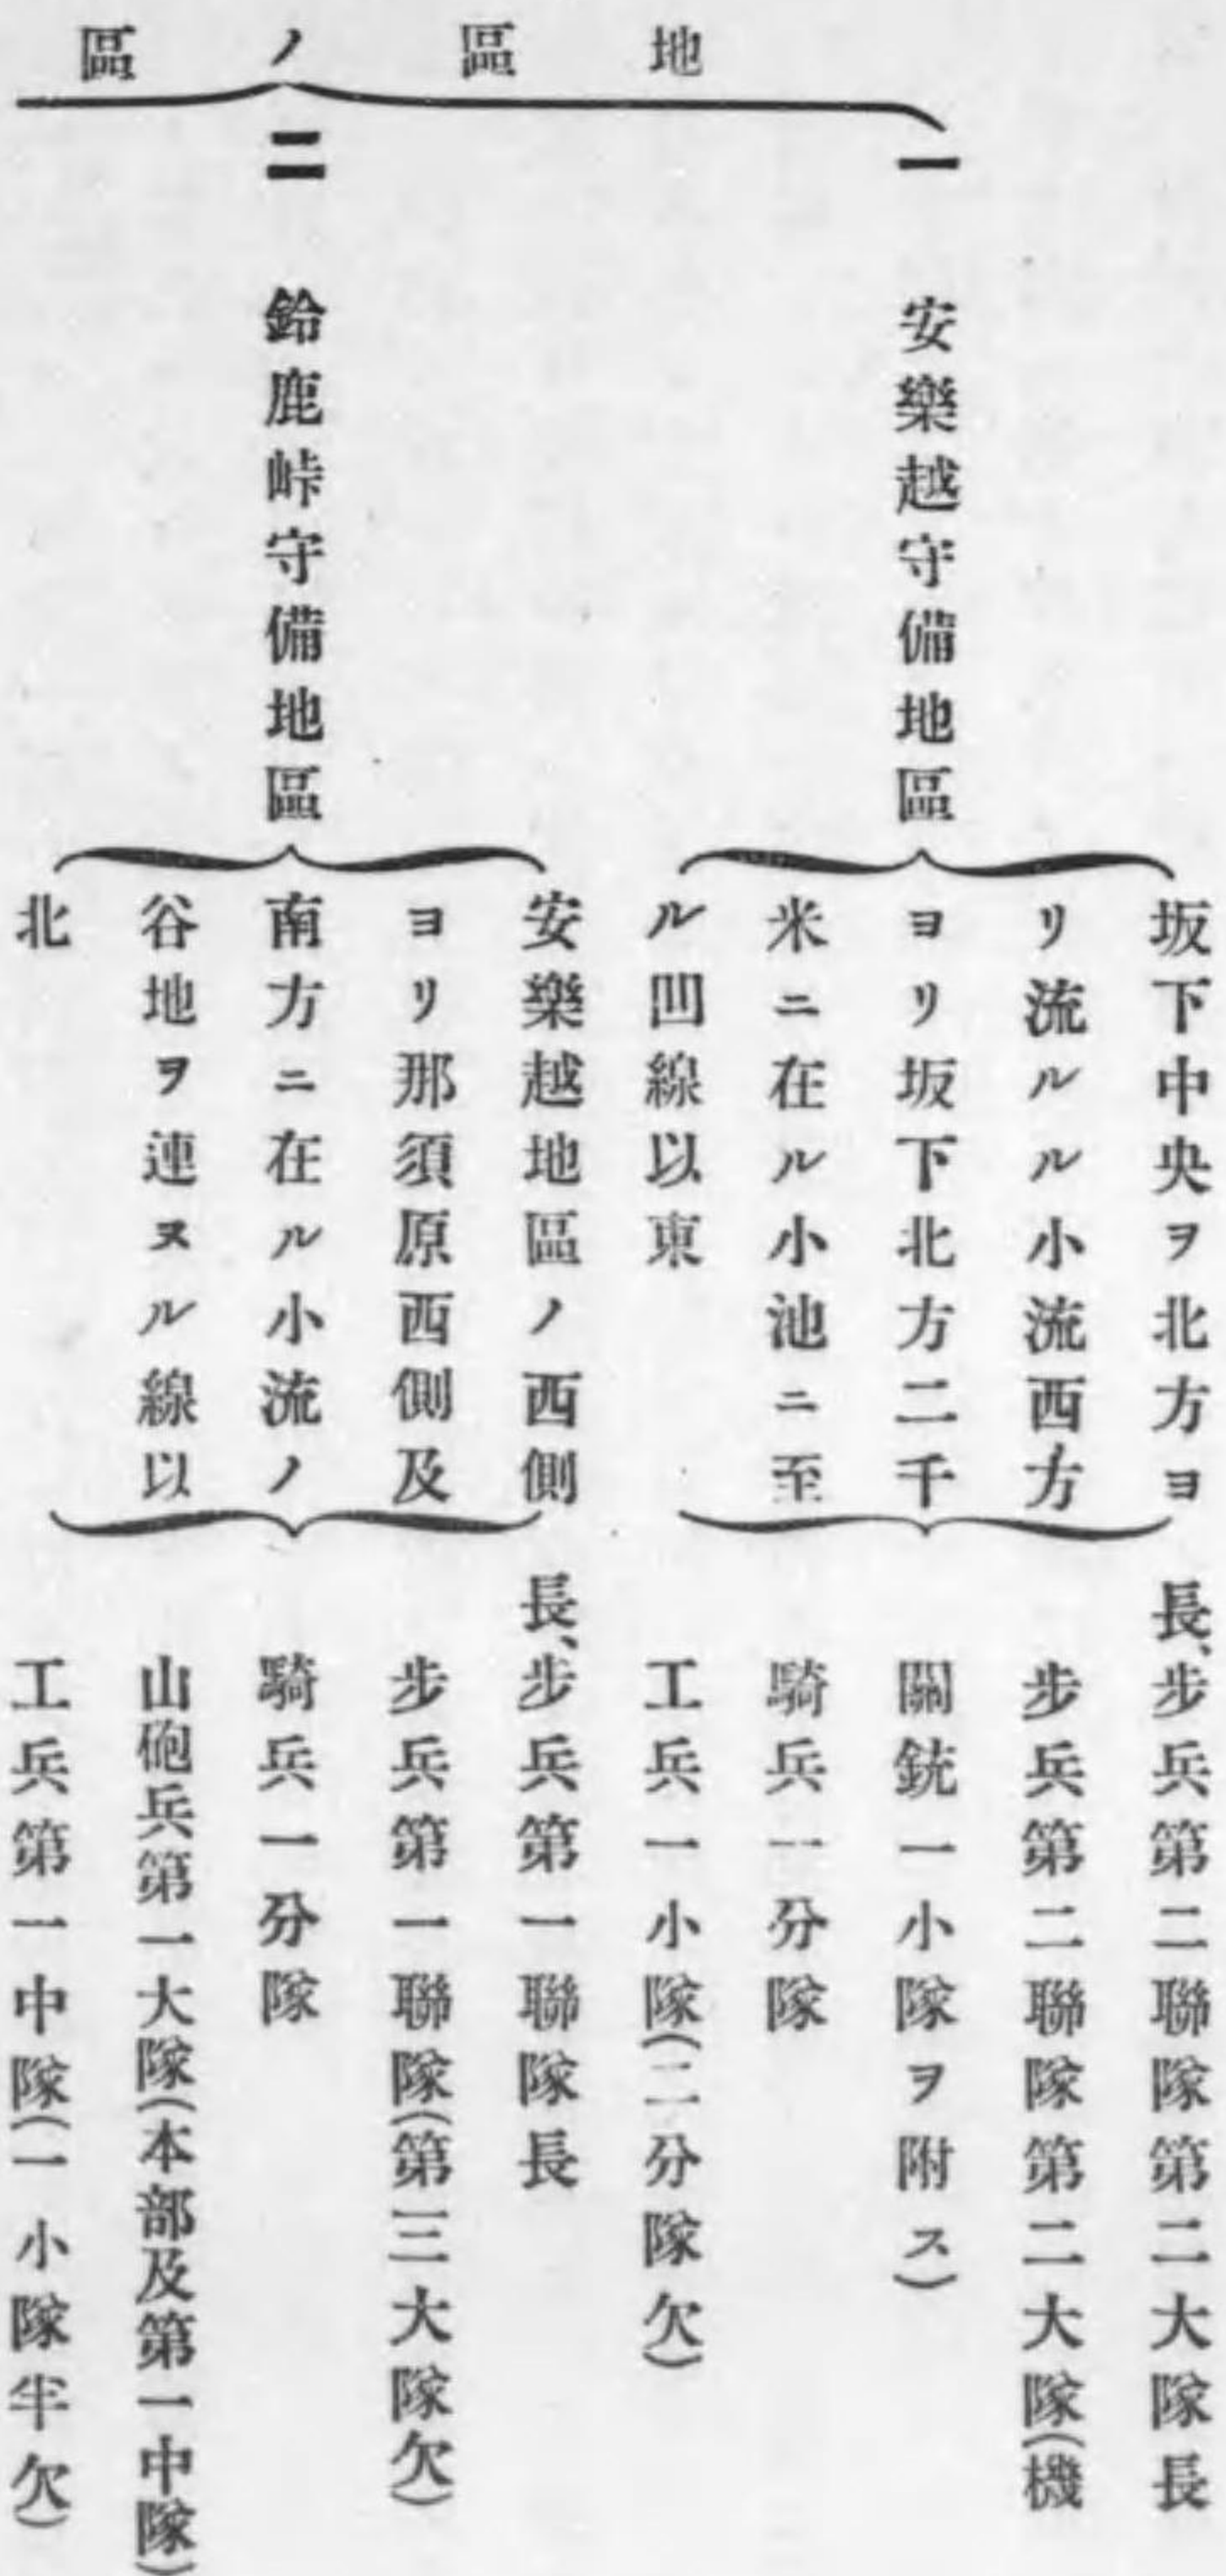 地區ノ區
一 安樂越守備地區
坂下中央ヲ北方ヨ
リ流ルル小流西方
ヨリ坂下北方二千
米ニ在ル小池ニ至
ル凹線以東
長、步兵第二聯隊第二大隊長
步兵第二聯隊第二大隊(機
關銃一小隊ヲ附ス)
騎兵一分隊
工兵一小隊(二分隊欠)
二 鈴鹿峠守備地區
安樂越地區ノ西側
ヨリ那須原西側及
南方ニ在ル小流ノ
谷地ヲ連ヌル線以
北
長、步兵第一聯隊長
步兵第一聯隊(第三大隊欠)
騎兵一分隊
山砲兵第一大隊(本部及第一中隊)
工兵第一中隊(一小隊半欠)